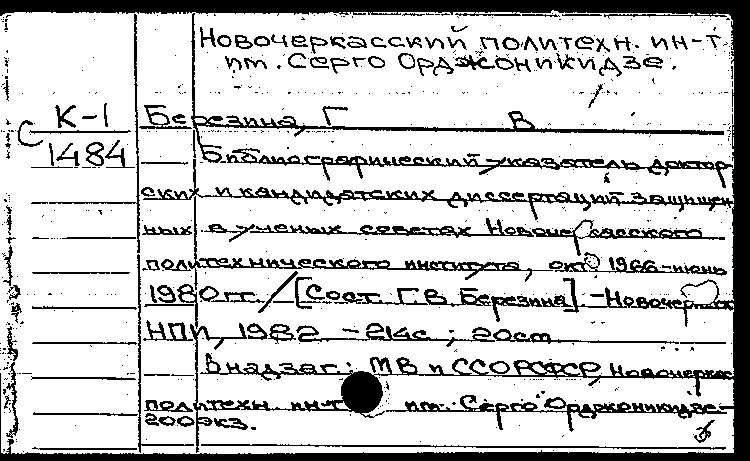 Новочеркасский политехн. ин-т
им. Серго Орджоникидзе.
К-1
Березина, Г В
С
1484
Библиографический указатель доктор-
ских и кандидатских диссертаций защищен-
ных в ученых советах Новочеркасского
политехнического института, окт. 1966-июнь
1980гг. / [Сост. Г.В. Березина] .-Новочеркасск
НПИ, 1982 -214с ; 20см
В надзаг.: МВ и ССО РСФСР, Новочеркас.
политехн. ин-т им. Серго Орджоникидзе.-
200экз.